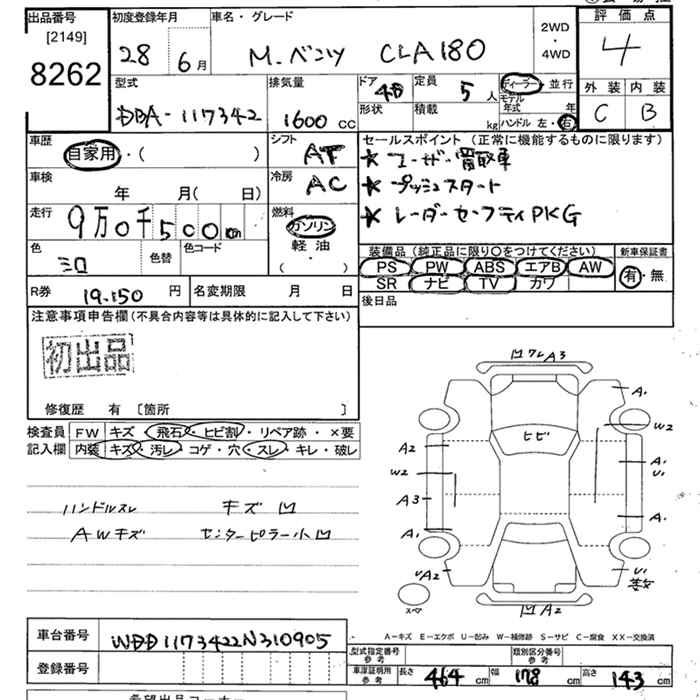 出品番号
[2149]
8262
初度登録年月
28 6月
車名・グレード
M.ベンツ CLA180
2WD
・
4WD
評価点
4
外装 内装
C B
型式
DBA-117342
排気量
1600 CC
ドア 4D
形状
定員 5人
積載 kg
ディーラー・並行
モデル年式 年
ハンドル 左・右
車歴
自家用・( )
シフト
AT
車検
年 月( 日)
冷房
AC
セールスポイント (正常に機能するものに限ります)
★ ユーザー買取車
★ プッシュスタート
★ レーダーセーフティPKG
走行
9万0千500km
燃料
ガソリン
軽油
( )
色
シロ
色替
色コード
装備品 (純正品に限り○をつけてください)
PS・PW・ABS・エアB・AW
SR・ナビ・TV・カワ
新車保証書
有・無
R券 19,150 円
名変期限 月 日
後日品
注意事項申告欄 (不具合内容等は具体的に記入して下さい)
初出品
修復歴 有 〔箇所 〕
検査員記入欄
FW キズ・飛石・ヒビ割・リペア跡・×要
内装 キズ・汚レ・コゲ・穴・スレ・キレ・破レ
ハンドルスレ キズ凹
AWキズ センターピラー小凹
凹ワレA3
A1
W2
ヒビ
A2
A1
U1
W2
A3
A1
A1
A2
U1
スペア
凹A2
A-キズ E-エクボ U-凹み W-補修跡 S-サビ C-腐食 XX-交換済
車台番号
WDD1173422N310905
登録番号
型式指定番号
参考
類別区分番号
参考
車庫証明用
参考
長さ 464 cm
幅 178 cm
高さ 143 cm
希望出品コーナー